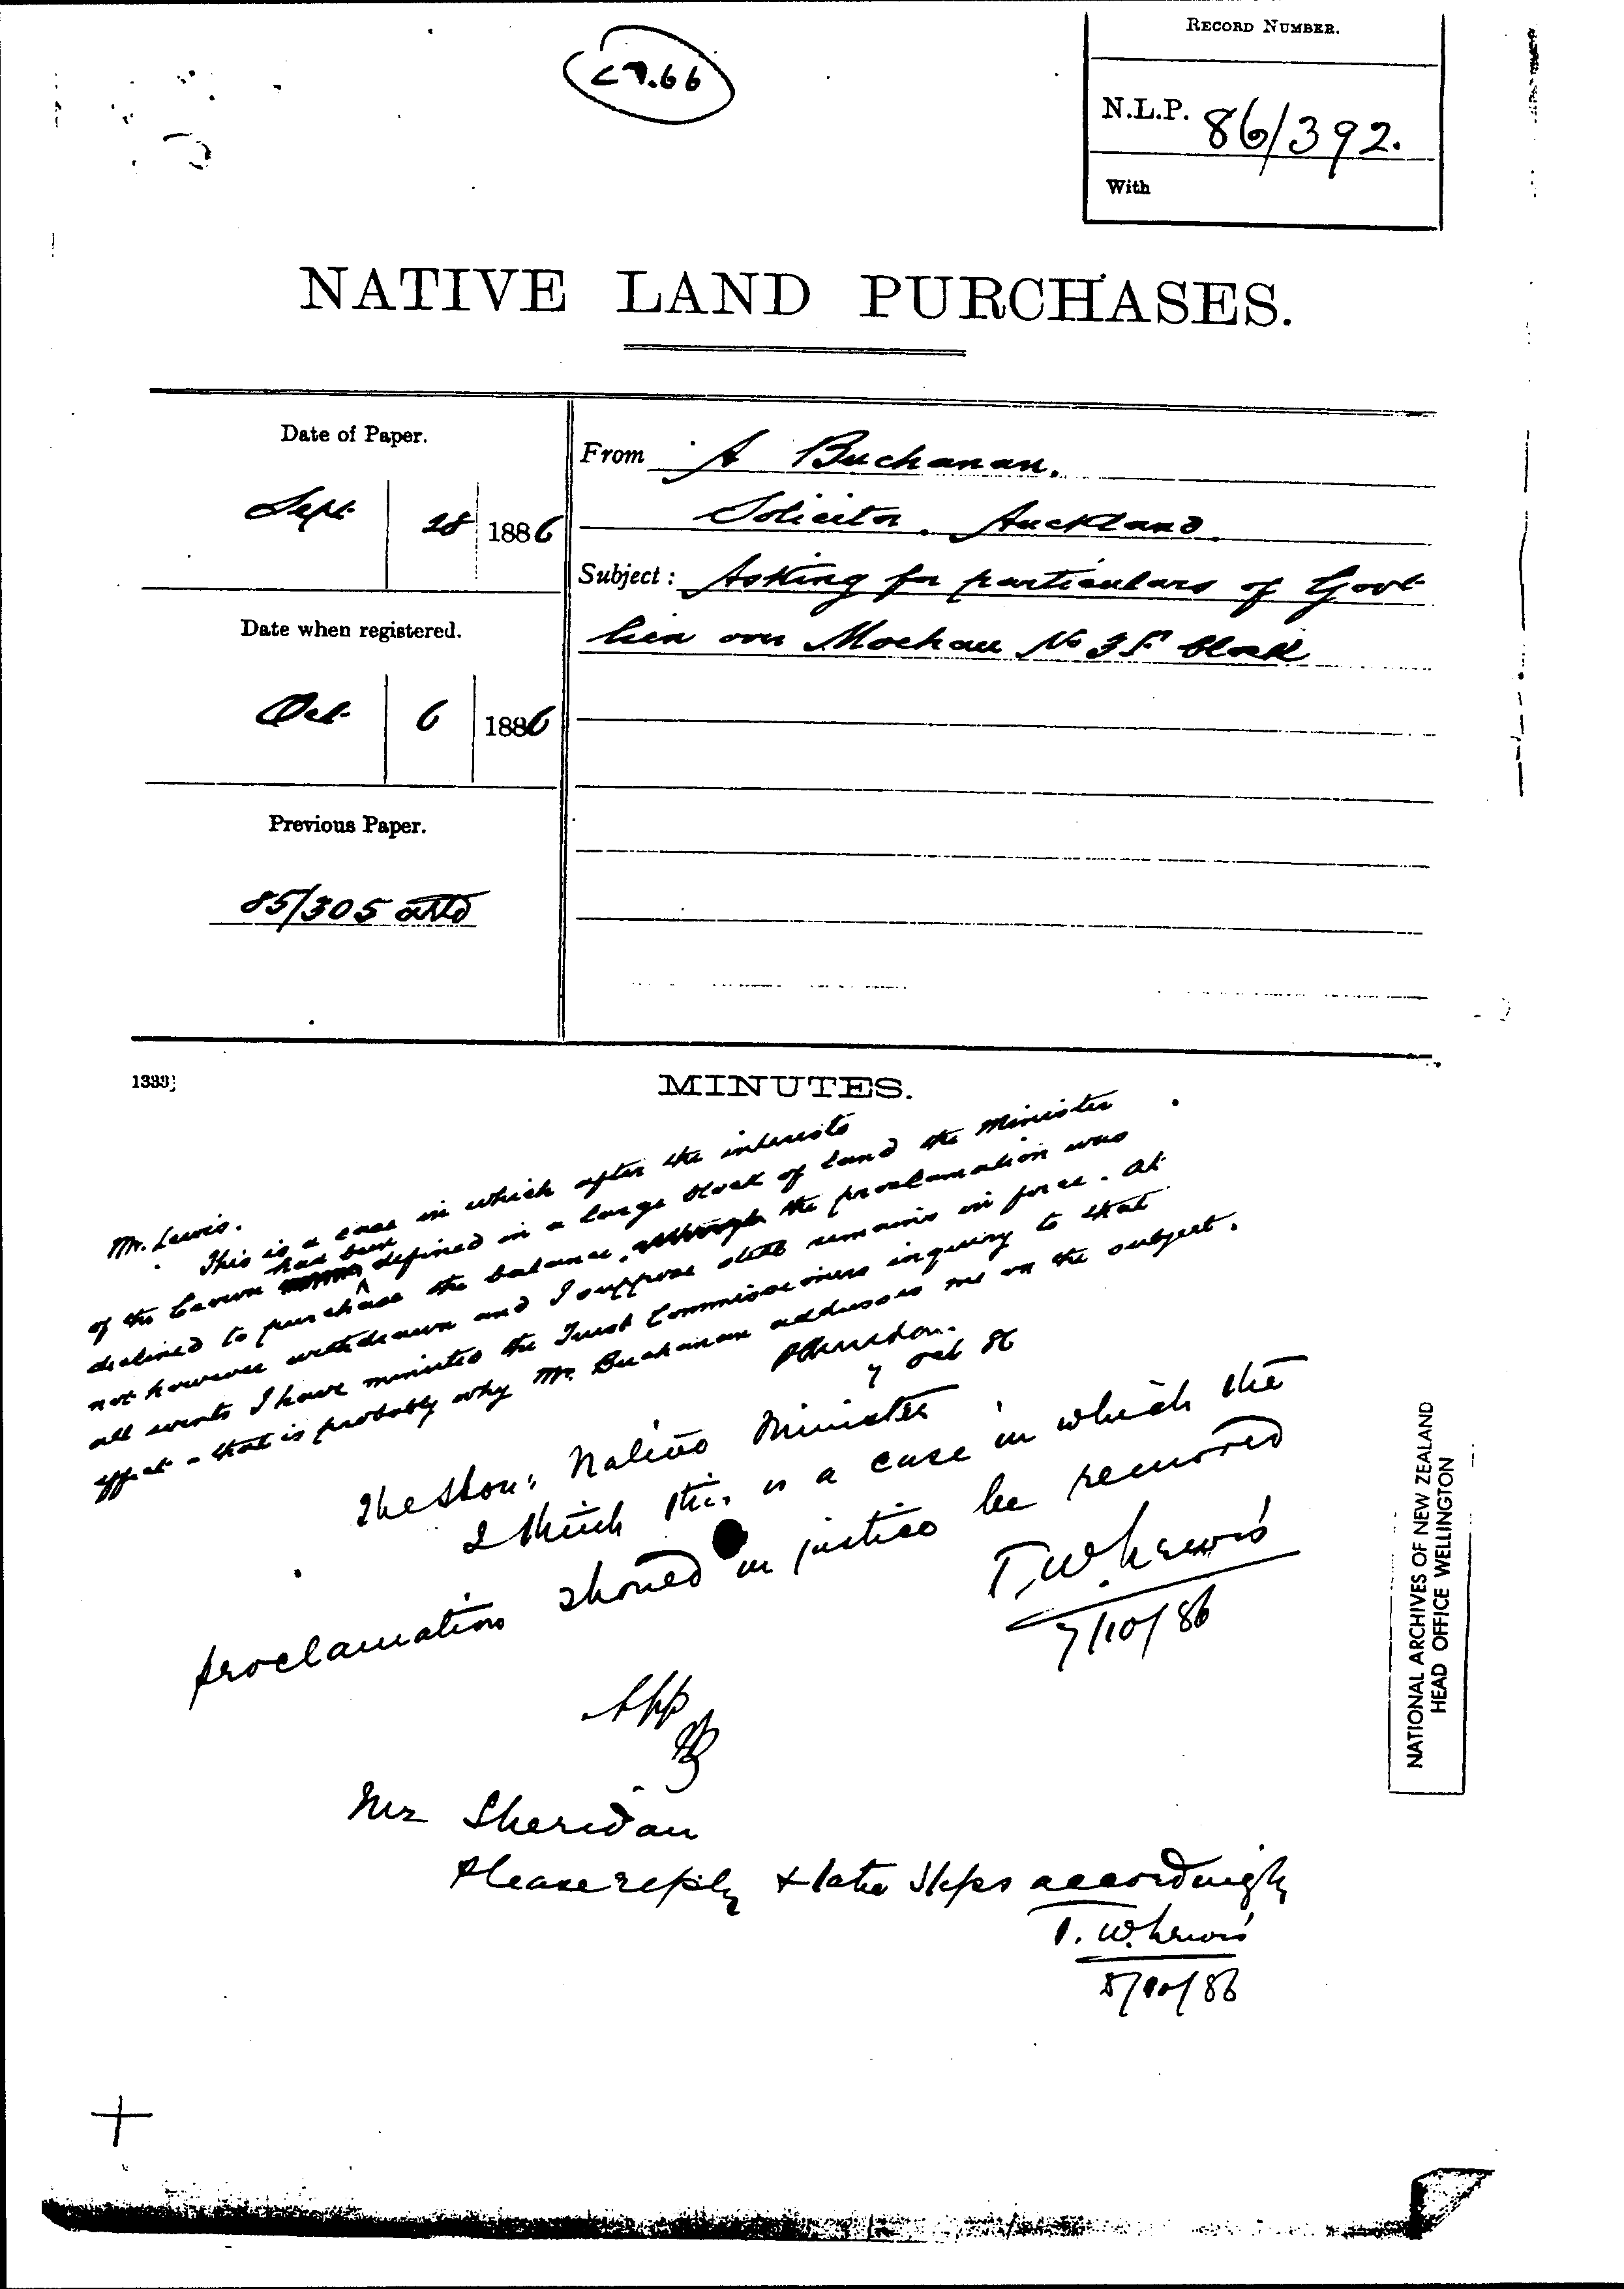 RECORD NUMBER.
N.L.P. 86/392.
With
NATIVE LAND PURCHASES.
Date of Paper.
Sept 28 1886
From A Buchanan.
Solicitor. Auckland.
Subject: Asking for particulars of Govt
lien over Moehau No 3F block
Date when registered.
Oct. 6 1886
Previous Paper.
85/305 attd
1333]
MINUTES.
Mr. Lewis.
This is a case in which after the interests
of the Crown had been defined in a large block of land the Minister
declined to purchase the balance. the proclamation was
not however withdrawn and I suppose still remains in force. At
all events I have minuted the Trust Commissioners inquiry to that
effect - that is probably why Mr. Buchanan addresses me on the subject.
PSheridan.
7 Oct 86
The Hon: Native Minister
I think this is a case in which the
proclamation should in justice be removed
T.W. Lewis
7/10/86
App
Mr Sheridan
Please reply & take steps accordingly
T. W. Lewis
8/10/86
NATIONAL ARCHIVES OF NEW ZEALAND
HEAD OFFICE WELLINGTON